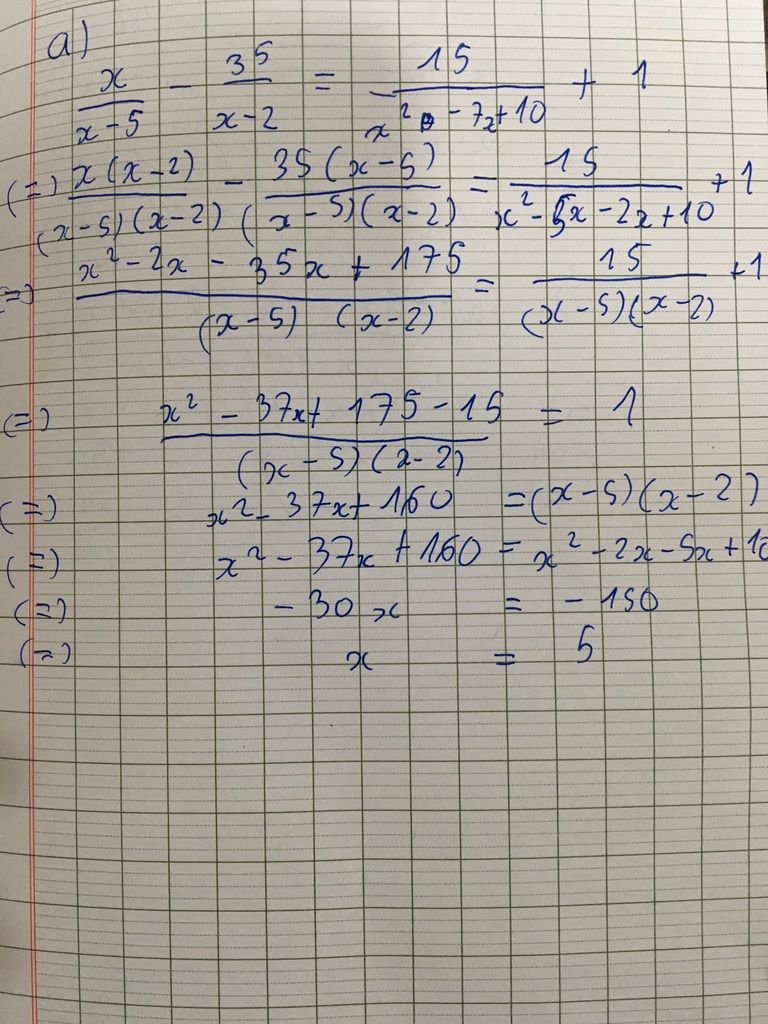 a)
x/(x-5) - 35/(x-2) = 15/(x² - 7x+10) + 1
(=) x(x-2)/((x-5)(x-2)) - 35(x-5)/((x-5)(x-2)) = 15/(x²-5x-2x+10) +1
(=) (x²-2x - 35x + 175)/((x-5)(x-2)) = 15/((x-5)(x-2)) +1
(=) (x² - 37x+ 175-15)/((x-5)(x-2)) = 1
(=) x²-37x+160 =(x-5)(x-2)
(=) x²-37x+160 = x²-2x-5x+10
(=) -30x = -150
(=) x = 5